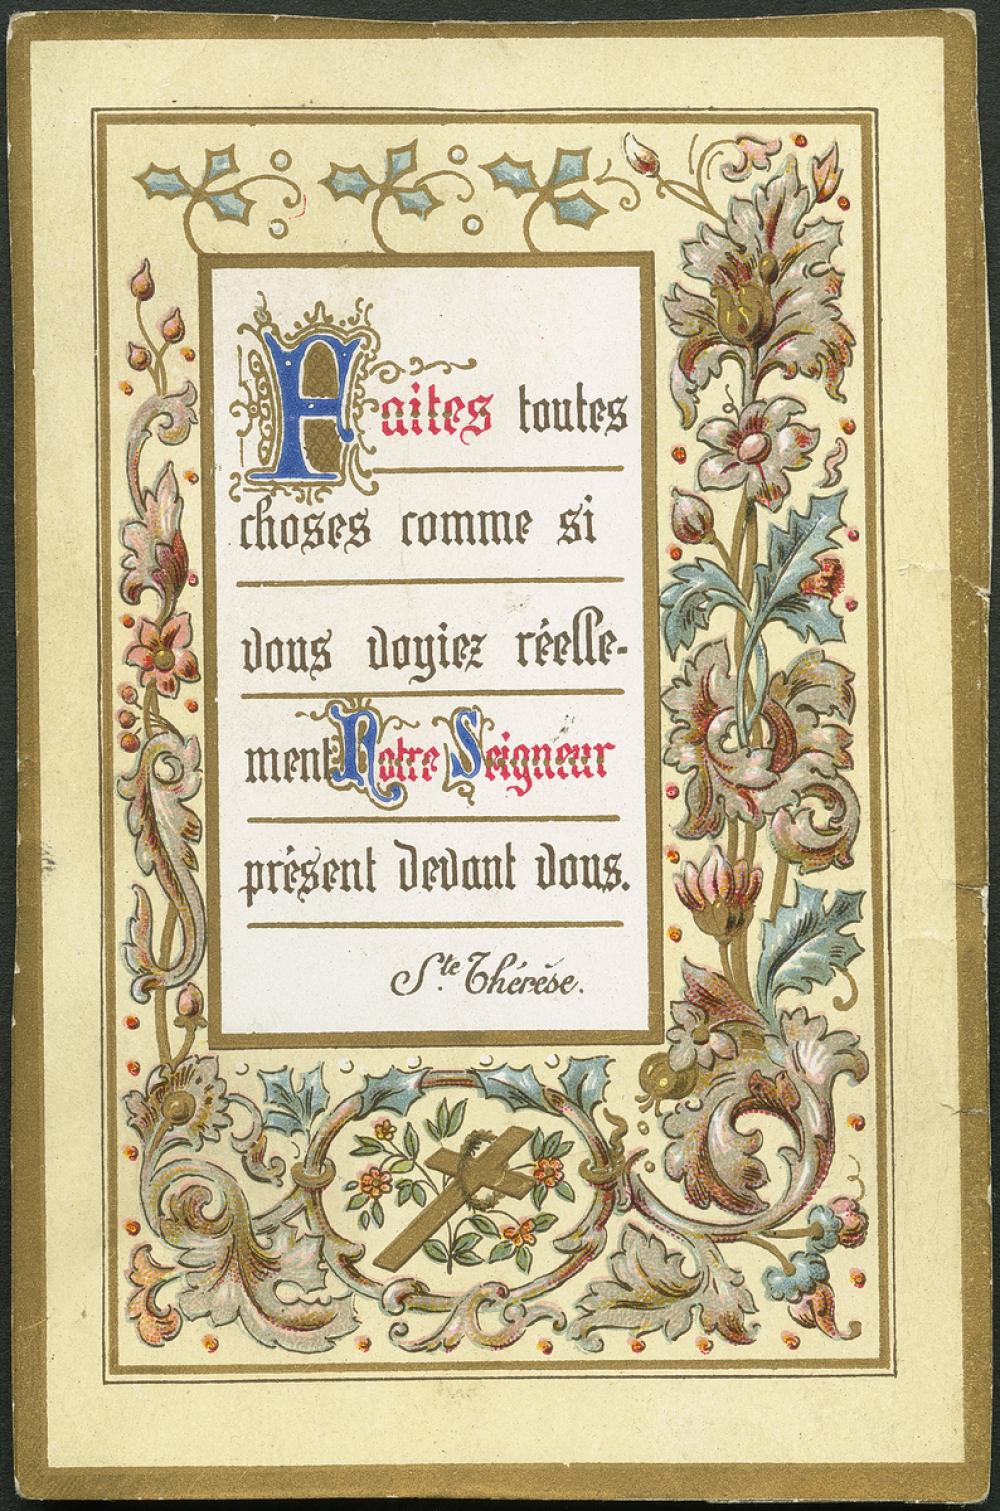 Faites toutes
choses comme si
vous voyiez réelle-
ment Notre Seigneur
présent devant vous.
Ste Thérèse.